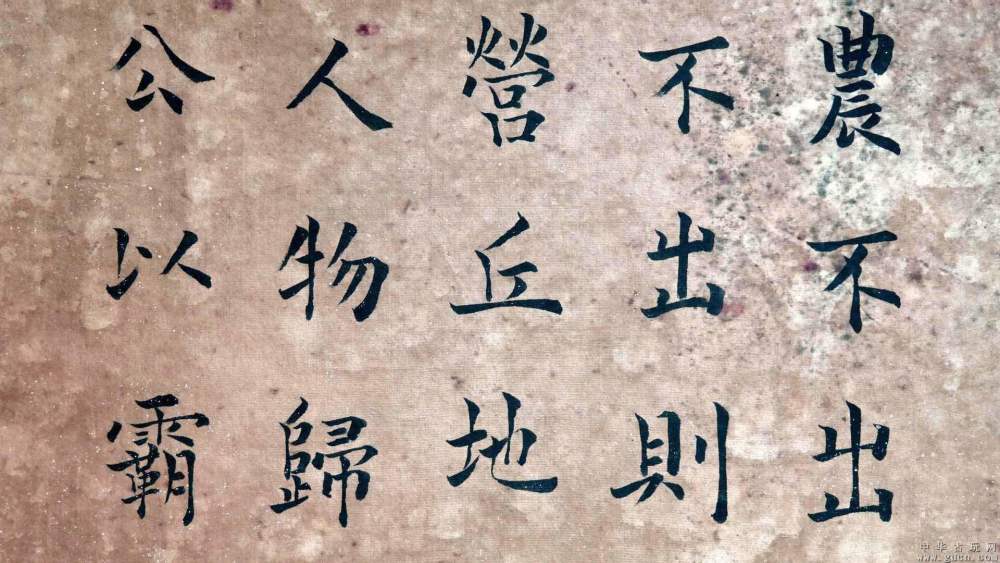 農不出
不出則
營丘地
人物歸
公以霸
中华古玩网
www.gucn.com